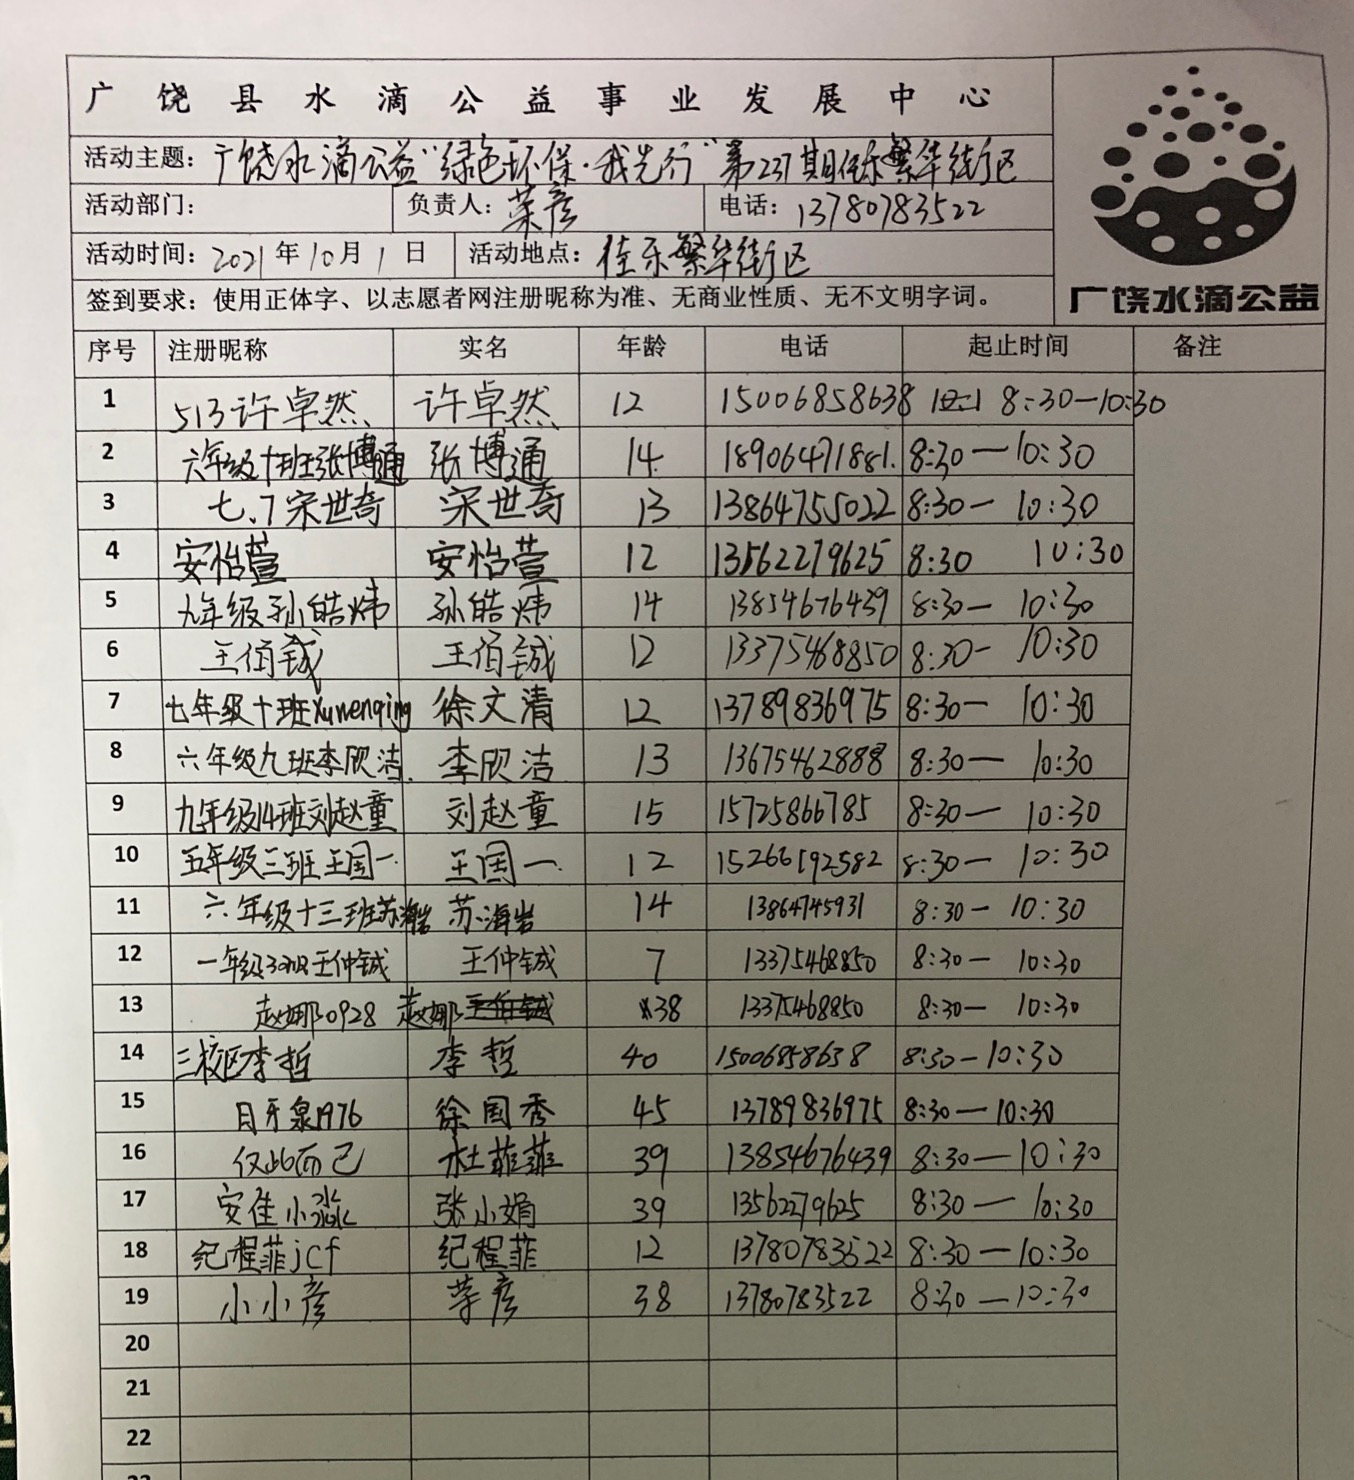 广饶县水滴公益事业发展中心
活动主题：广饶水滴公益"绿色环保·我先行"第237期佳乐繁华街区
活动部门： 负责人：荣彦 电话：13780783522
活动时间：2021年10月1日 活动地点：佳乐繁华街区
签到要求：使用正体字、以志愿者网注册昵称为准、无商业性质、无不文明字词。
广饶水滴公益
序号 注册昵称 实名 年龄 电话 起止时间 备注
1 513许卓然 许卓然 12 15006858638 8:30—10:30
2 六年级十班张博通 张博通 14 18906471881. 8:30—10:30
3 七.7宋世奇 宋世奇 13 13864755022 8:30— 10:30
4 安怡萱 安怡萱 12 13562279625 8:30 10:30
5 九年级孙皓炜 孙皓炜 14 13854676439 8:30— 10:30
6 王佰铖 王佰铖 12 13375468850 8:30- 10:30
7 七年级十班xuwenqing 徐文清 12 13789836975 8:30— 10:30
8 六年级九班李欣洁. 李欣洁 13 13675462888 8:30— 10:30
9 九年级14班刘赵童 刘赵童 15 15725866785 8:30— 10:30
10 五年级三班王国一. 王国一. 12 15266192582 8:30— 10:30
11 六年级十三班苏海岩 苏海岩 14 13864745931 8:30— 10:30
12 一年级3班王仲铖 王仲铖 7 13375468850 8:30— 10:30
13 赵娜0928 赵娜 38 13375468850 8:30— 10:30
14 三校区李哲 李哲 40 15006858638 8:30—10:30
15 月牙泉1976 徐国秀 45 13789836975 8:30—10:30
16 仅此而已 杜菲菲 39 13854676439 8:30—10:30
17 安佳小淼 张小娟 39 13562279625 8:30— 10:30
18 纪程菲jcf 纪程菲 12 13780783522 8:30—10:30
19 小小彦 荣彦 38 13780783522 8:30—10:30
20
21
22
23